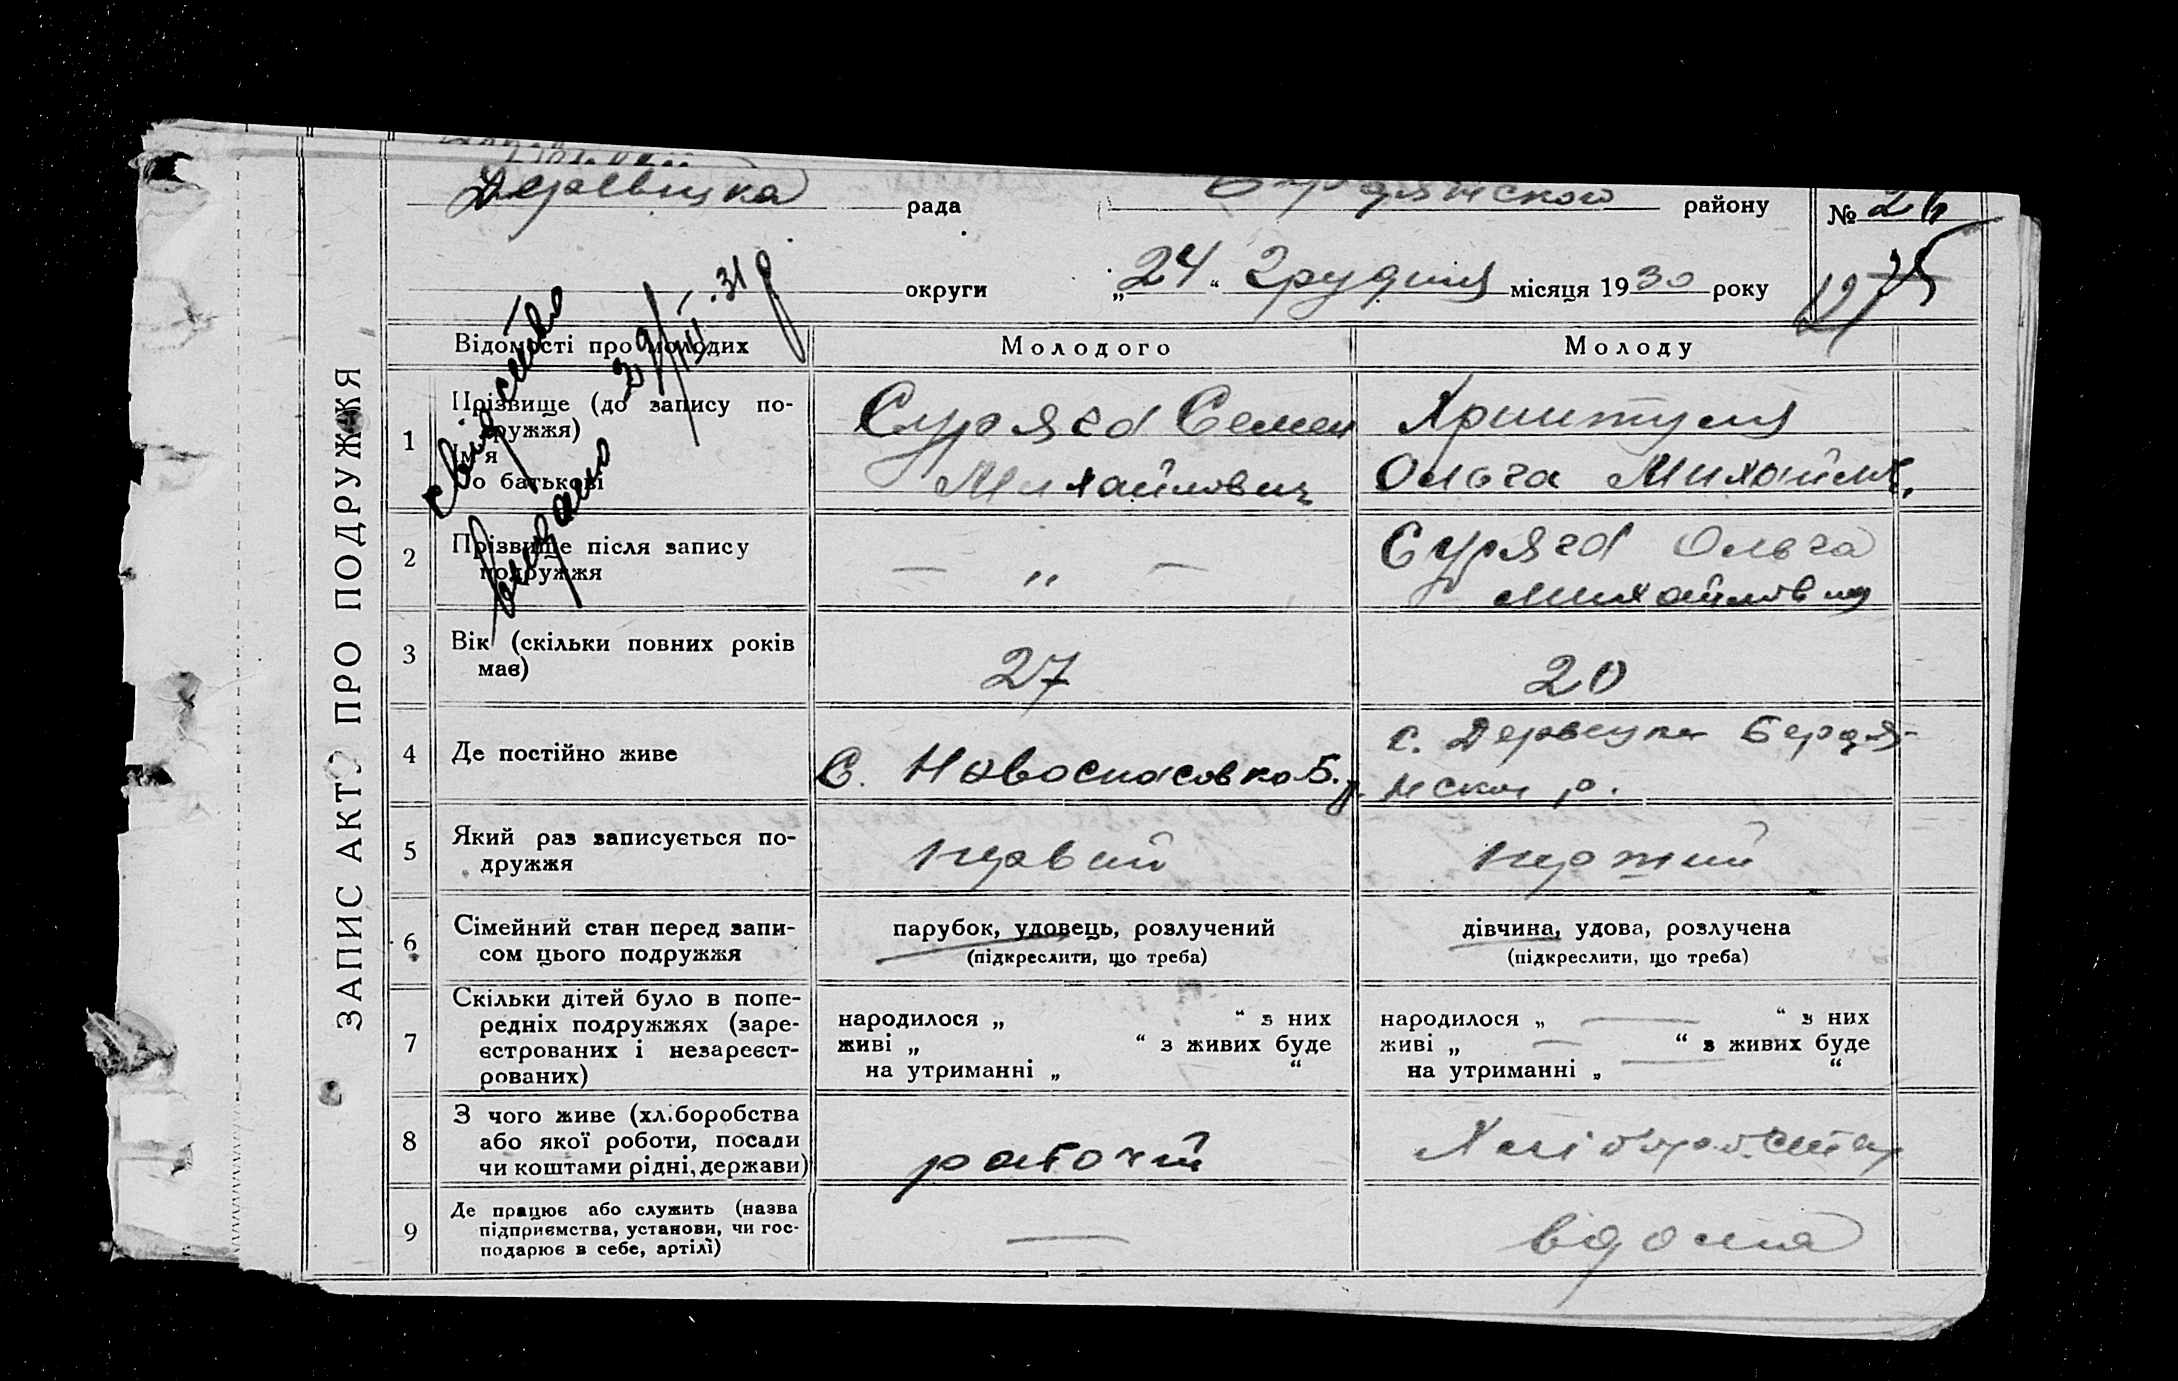 ЗАПИС АКТУ ПРО ПОДРУЖЖЯ
рада
району
№ 26
округи
„24“ Грудня місяця 1930 року
1275
свідоцтво
видано 29/ІІІ.31 р
Відомості про молодих
Молодого
Молоду
1
Прізвище (до запису по-
дружжя)
Ім'я
По батькові
Суряга Семен
Михайлович
Христуля
Ольга Михайлів.
2
Прізвище після запису
подружжя
— „ —
Суряга Ольга
Михайлівна
3
Вік (скільки повних років
має)
27
20
4
Де постійно живе
С. Новоспасовка Б. р.
с. Дервецка Бердя-
нськ р.
5
Який раз записується по-
дружжя
первий
перший
6
Сімейний стан перед запи-
сом цього подружжя
парубок, удовець, розлучений
(підкреслити, що треба)
дівчина, удова, розлучена
(підкреслити, що треба)
7
Скільки дітей було в попе-
редніх подружжях (заре-
єстрованих і незареєст-
рованих)
народилося „ “ з них
живі „ “ з живих буде
на утриманні „ “
народилося „ — “ з них
живі „ — “ з живих буде
на утриманні „ — “
8
З чого живе (хліборобства
або якої роботи, посади
чи коштами рідні, держави)
рабочий
9
Де працює або служить (назва
підприємства, установи, чи гос-
подарює в себе, артілі)
—
вдома